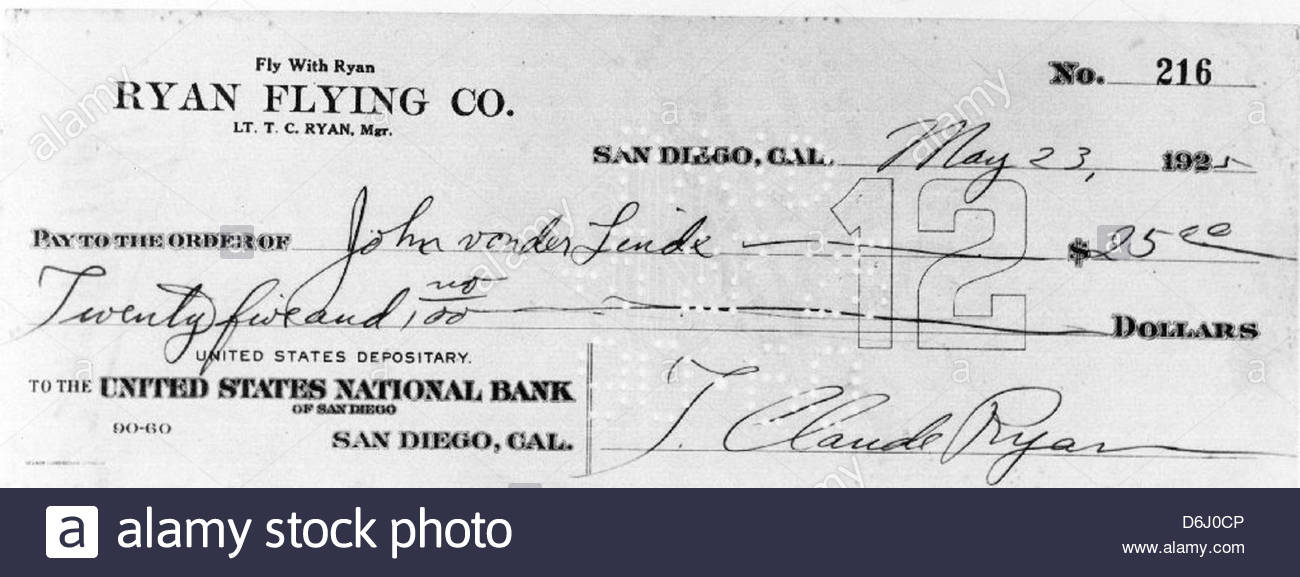 Fly With Ryan
RYAN FLYING CO.
LT. T. C. RYAN, Mgr.
No. 216
SAN DIEGO, CAL. May 23, 1925
12
PAY TO THE ORDER OF John vander Linde $ 25 00
Twenty five and no/100 DOLLARS
UNITED STATES DEPOSITARY.
TO THE UNITED STATES NATIONAL BANK
OF SAN DIEGO
90-60
SAN DIEGO, CAL.
T. Claude Ryan
a alamy stock photo
D6J0CP
www.alamy.com